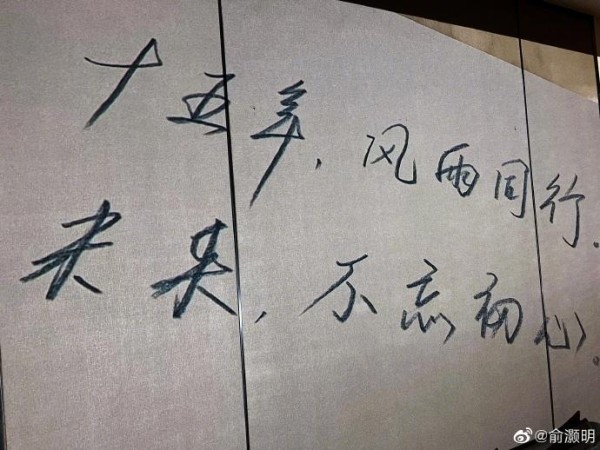 十五年，风雨同行.
未来，不忘初心。
@俞灏明